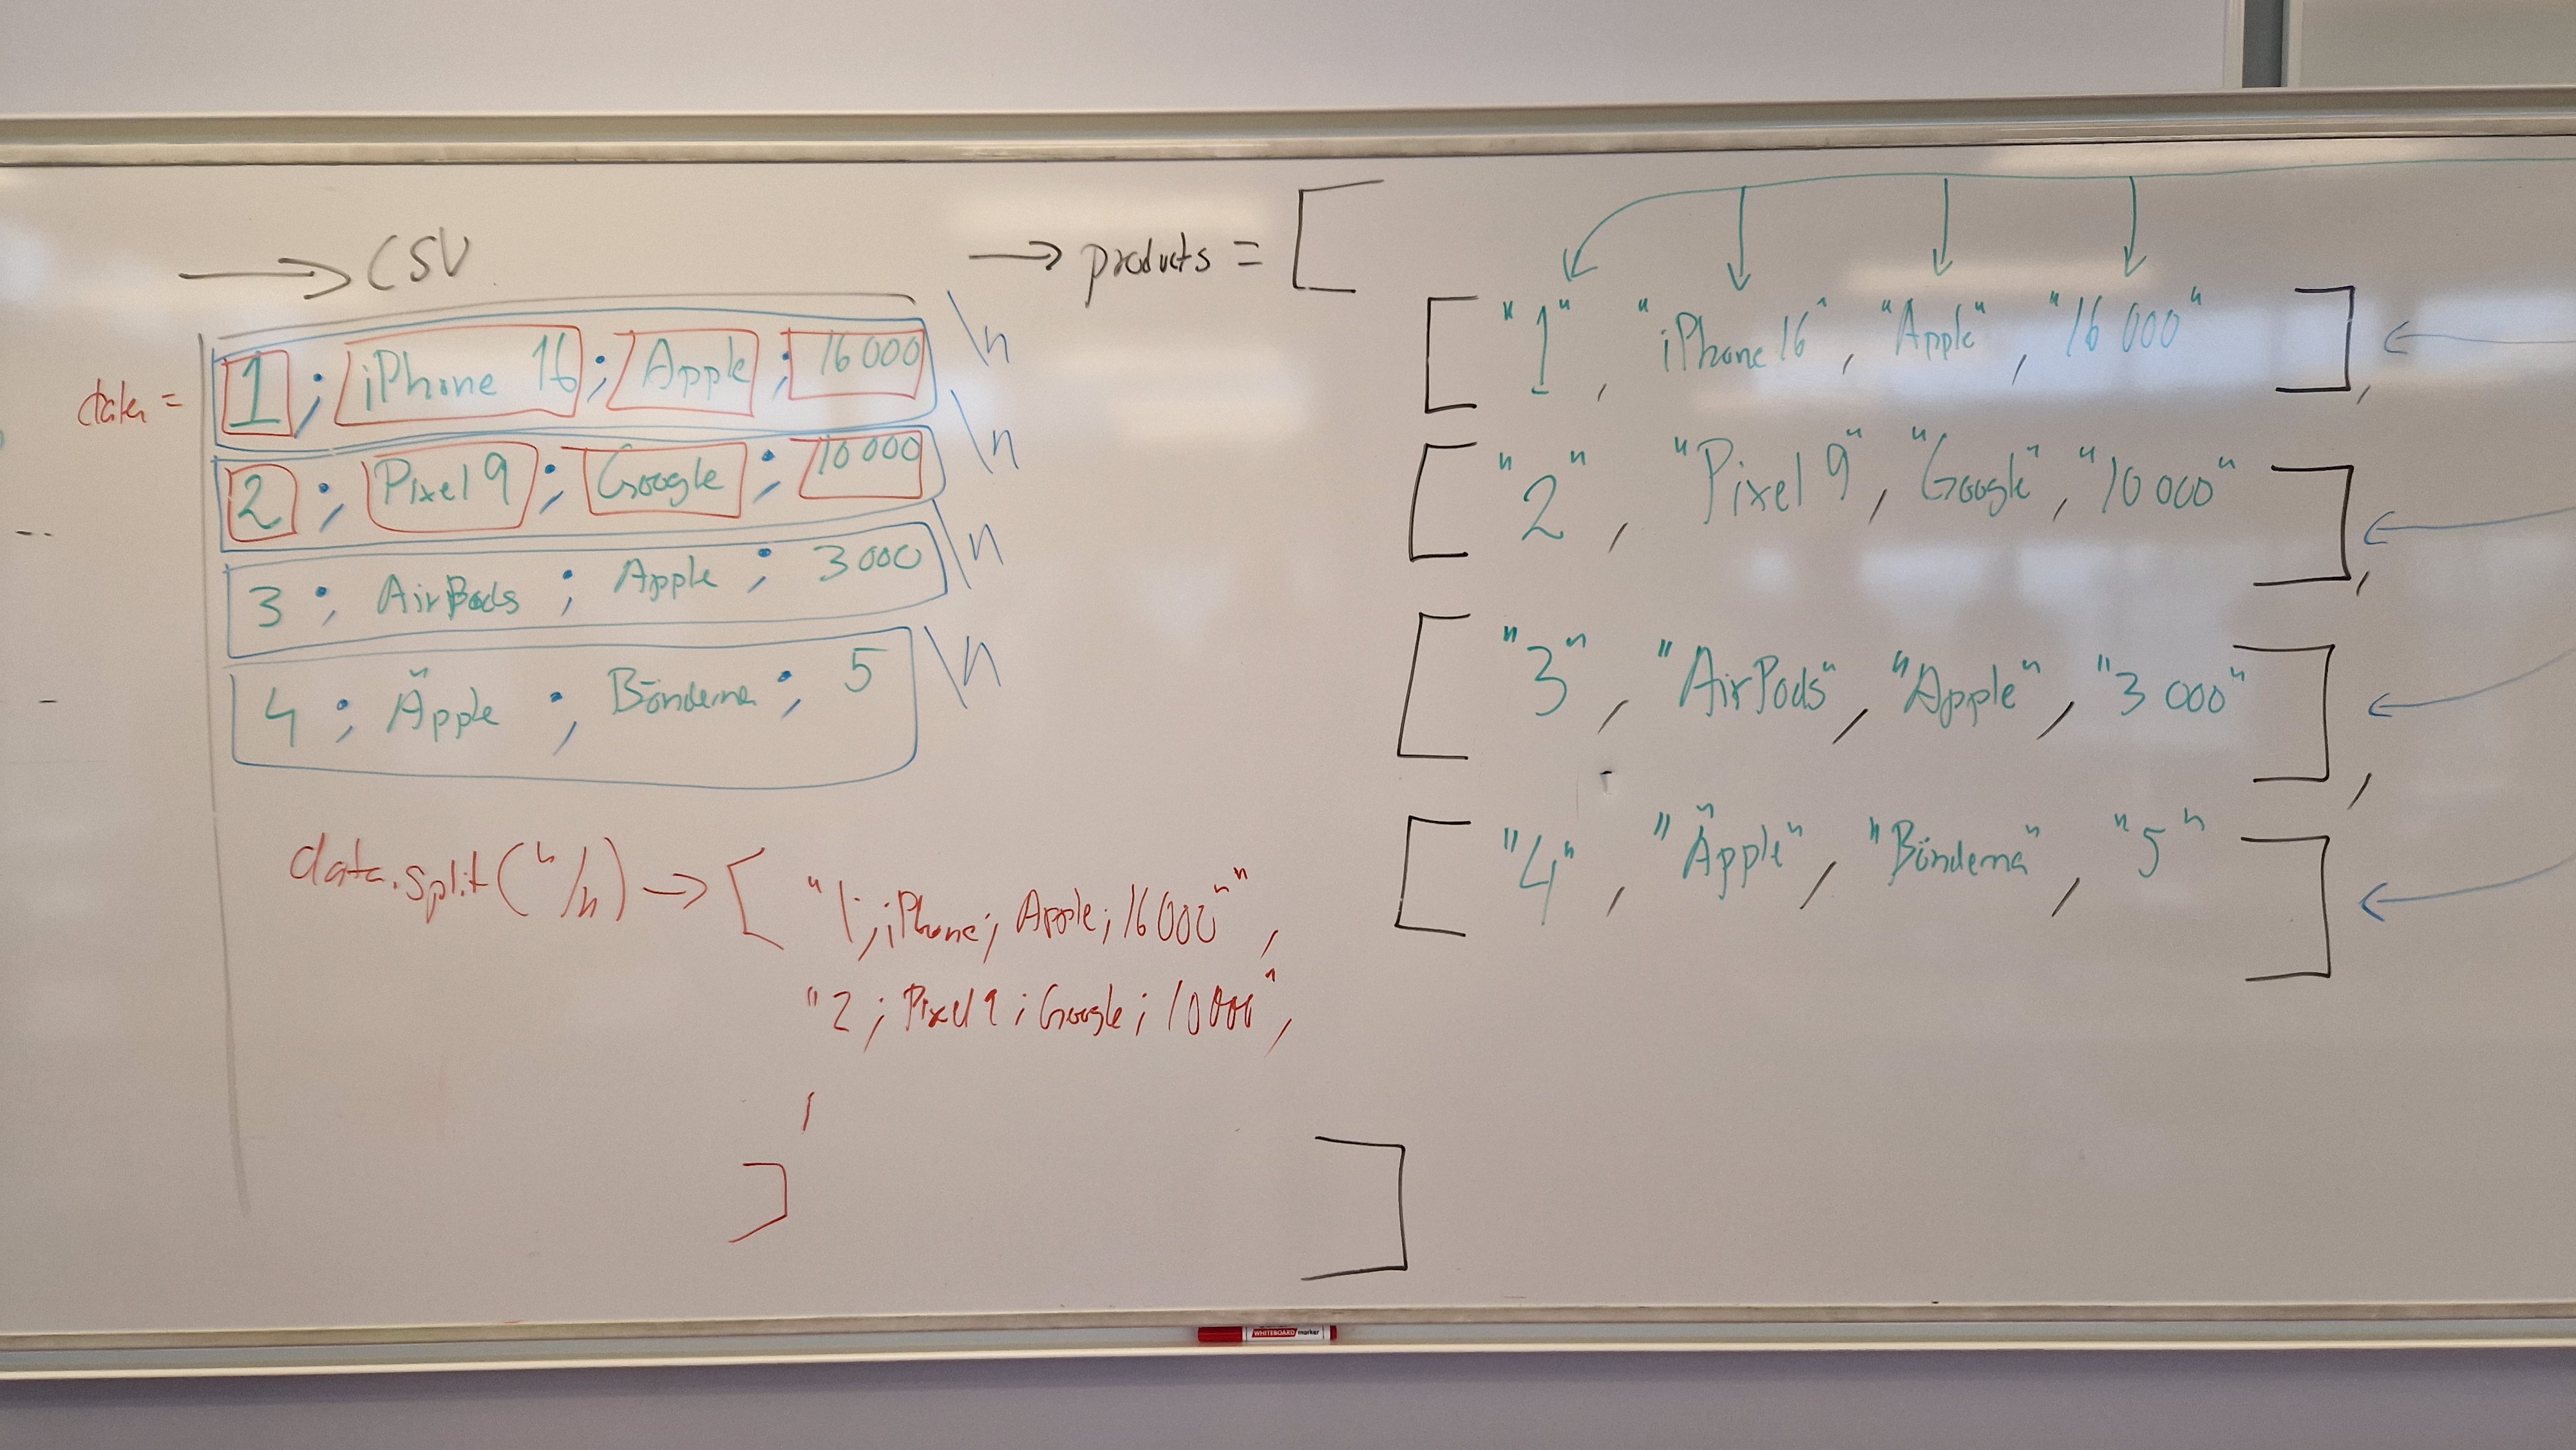 → CSV
data =
1 ; iPhone 16 ; Apple ; 16 000 \n
2 ; Pixel 9 ; Google ; 10 000 \n
3 ; AirPods ; Apple ; 3 000 \n
4 ; Äpple ; Bönderna ; 5 \n
data.split("/n) → [ "1;iPhone; Apple; 16 000"",
"2 ; Pixel 9 ; Google ; 10 000",
,
]
→ products = [
[ "1" , "iPhone 16" , "Apple" , "16 000" ],
[ "2" , "Pixel 9" , "Google" , "10 000" ],
[ "3" , "AirPods" , "Apple" , "3 000" ],
[ "4" , "Äpple" , "Bönderna" , "5" ]
]
WHITEBOARD marker